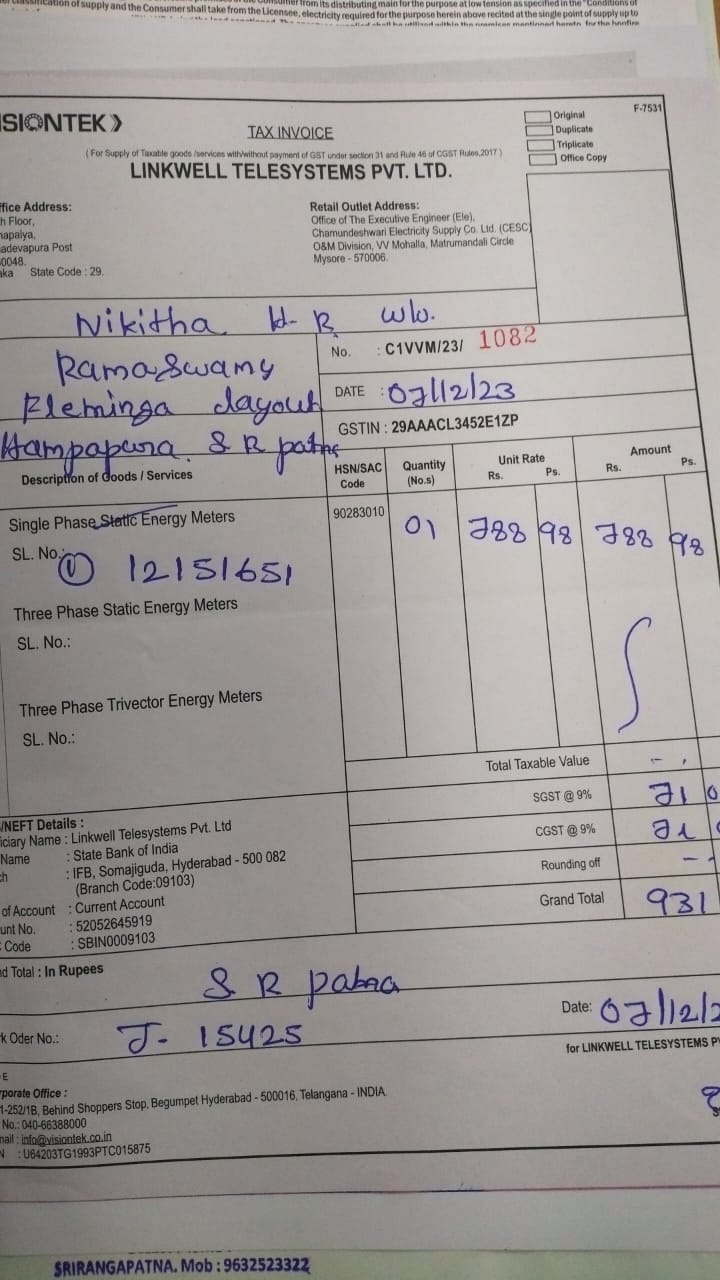 er classification of supply and the Consumer shall take from the Licensee, electricity required for the purpose herein above recited at the single point of supply up to
SIONTEK
TAX INVOICE
F-7531
Original
Duplicate
Triplicate
Office Copy
( For Supply of Taxable goods /services with/without payment of GST under section 31 and Rule 46 of CGST Rules,2017 )
LINKWELL TELESYSTEMS PVT. LTD.
ffice Address:
h Floor,
napalya,
adevapura Post
0048.
aka State Code : 29.
Retail Outlet Address:
Office of The Executive Engineer (Ele),
Chamundeshwari Electricity Supply Co. Ltd. (CESC)
O&M Division, VV Mohalla, Matrumandali Circle
Mysore - 570006.
Nikitha H R w/o.
Ramaswamy
Fleminga layout
Hampapura. S R patna
No. : C1VVM/23/ 1082
DATE : 07/12/23
GSTIN : 29AAACL3452E1ZP
Description of Goods / Services
HSN/SAC Code
Quantity (No.s)
Unit Rate
Rs. Ps.
Amount
Rs. Ps.
Single Phase Static Energy Meters 90283010 01 788 98 788 98
SL. No.:
① 12151651
Three Phase Static Energy Meters
SL. No.:
Three Phase Trivector Energy Meters
SL. No.:
Total Taxable Value
SGST @ 9% 71 0
CGST @ 9% 71
Rounding off
Grand Total 931
/NEFT Details :
iciary Name : Linkwell Telesystems Pvt. Ltd
Name : State Bank of India
ch : IFB, Somajiguda, Hyderabad - 500 082
(Branch Code:09103)
of Account : Current Account
unt No. : 52052645919
Code : SBIN0009103
nd Total : In Rupees
S R patna
k Oder No.: J- 15425
Date: 07/12/2
for LINKWELL TELESYSTEMS P
E
rporate Office :
1-252/1B, Behind Shoppers Stop, Begumpet Hyderabad - 500016, Telangana - INDIA.
No.: 040-66388000
mail : info@visiontek.co.in
N : U64203TG1993PTC015875
SRIRANGAPATNA. Mob : 9632523322